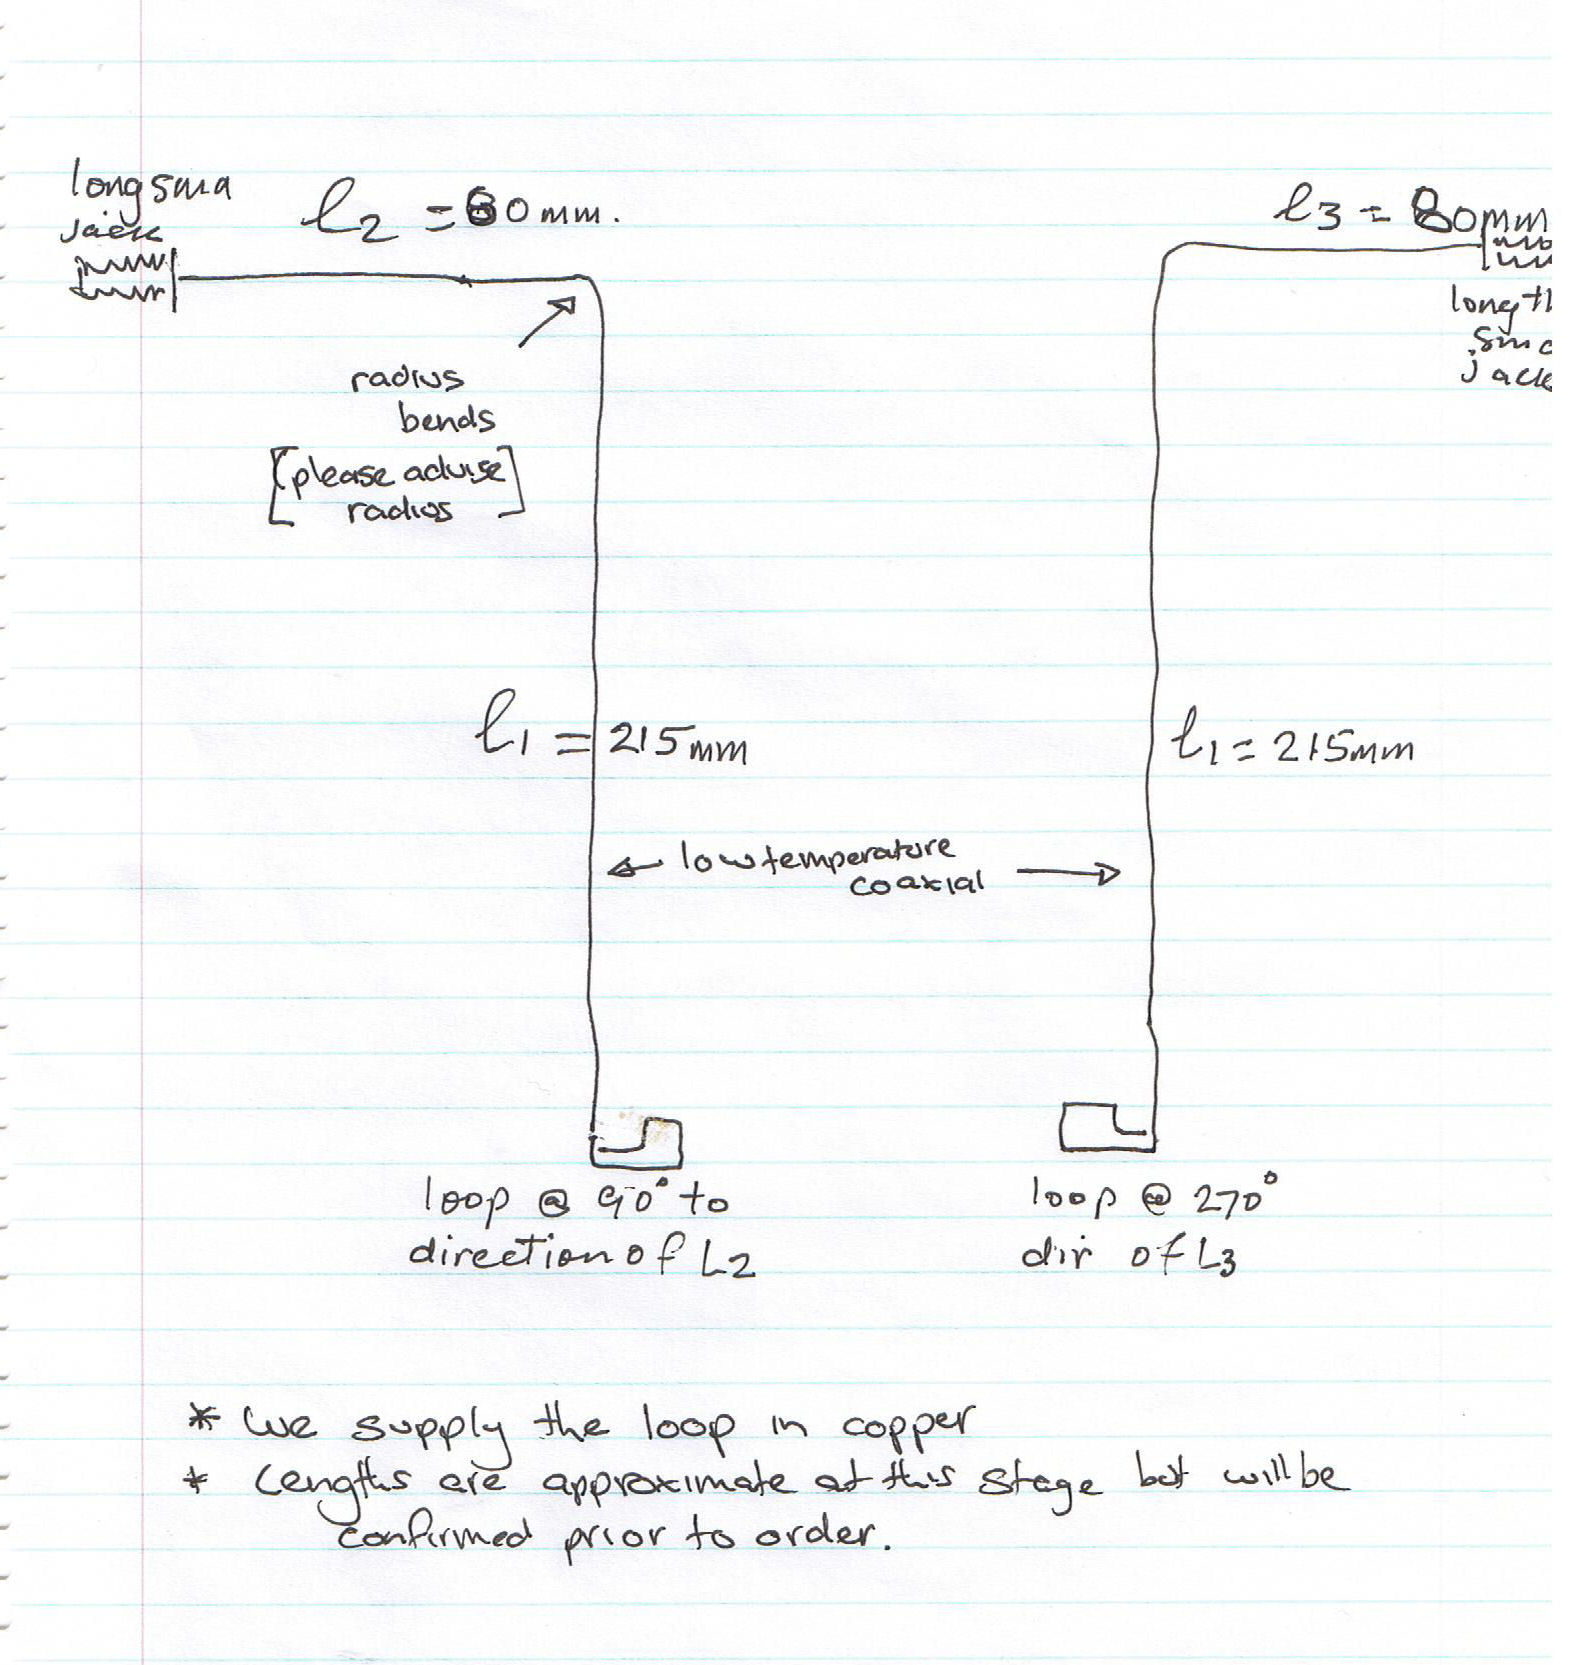 long sma
jack
l2 = 80mm.
l3 = 80mm
long th
sma
jack
radius
bends
[please advise
radios]
l1 = 215mm
l1 = 215mm
low temperature
coaxial
loop @ 90° to
direction of L2
loop @ 270°
dir of L3
* We supply the loop in copper
* Lengths are approximate at this stage but will be
confirmed prior to order.